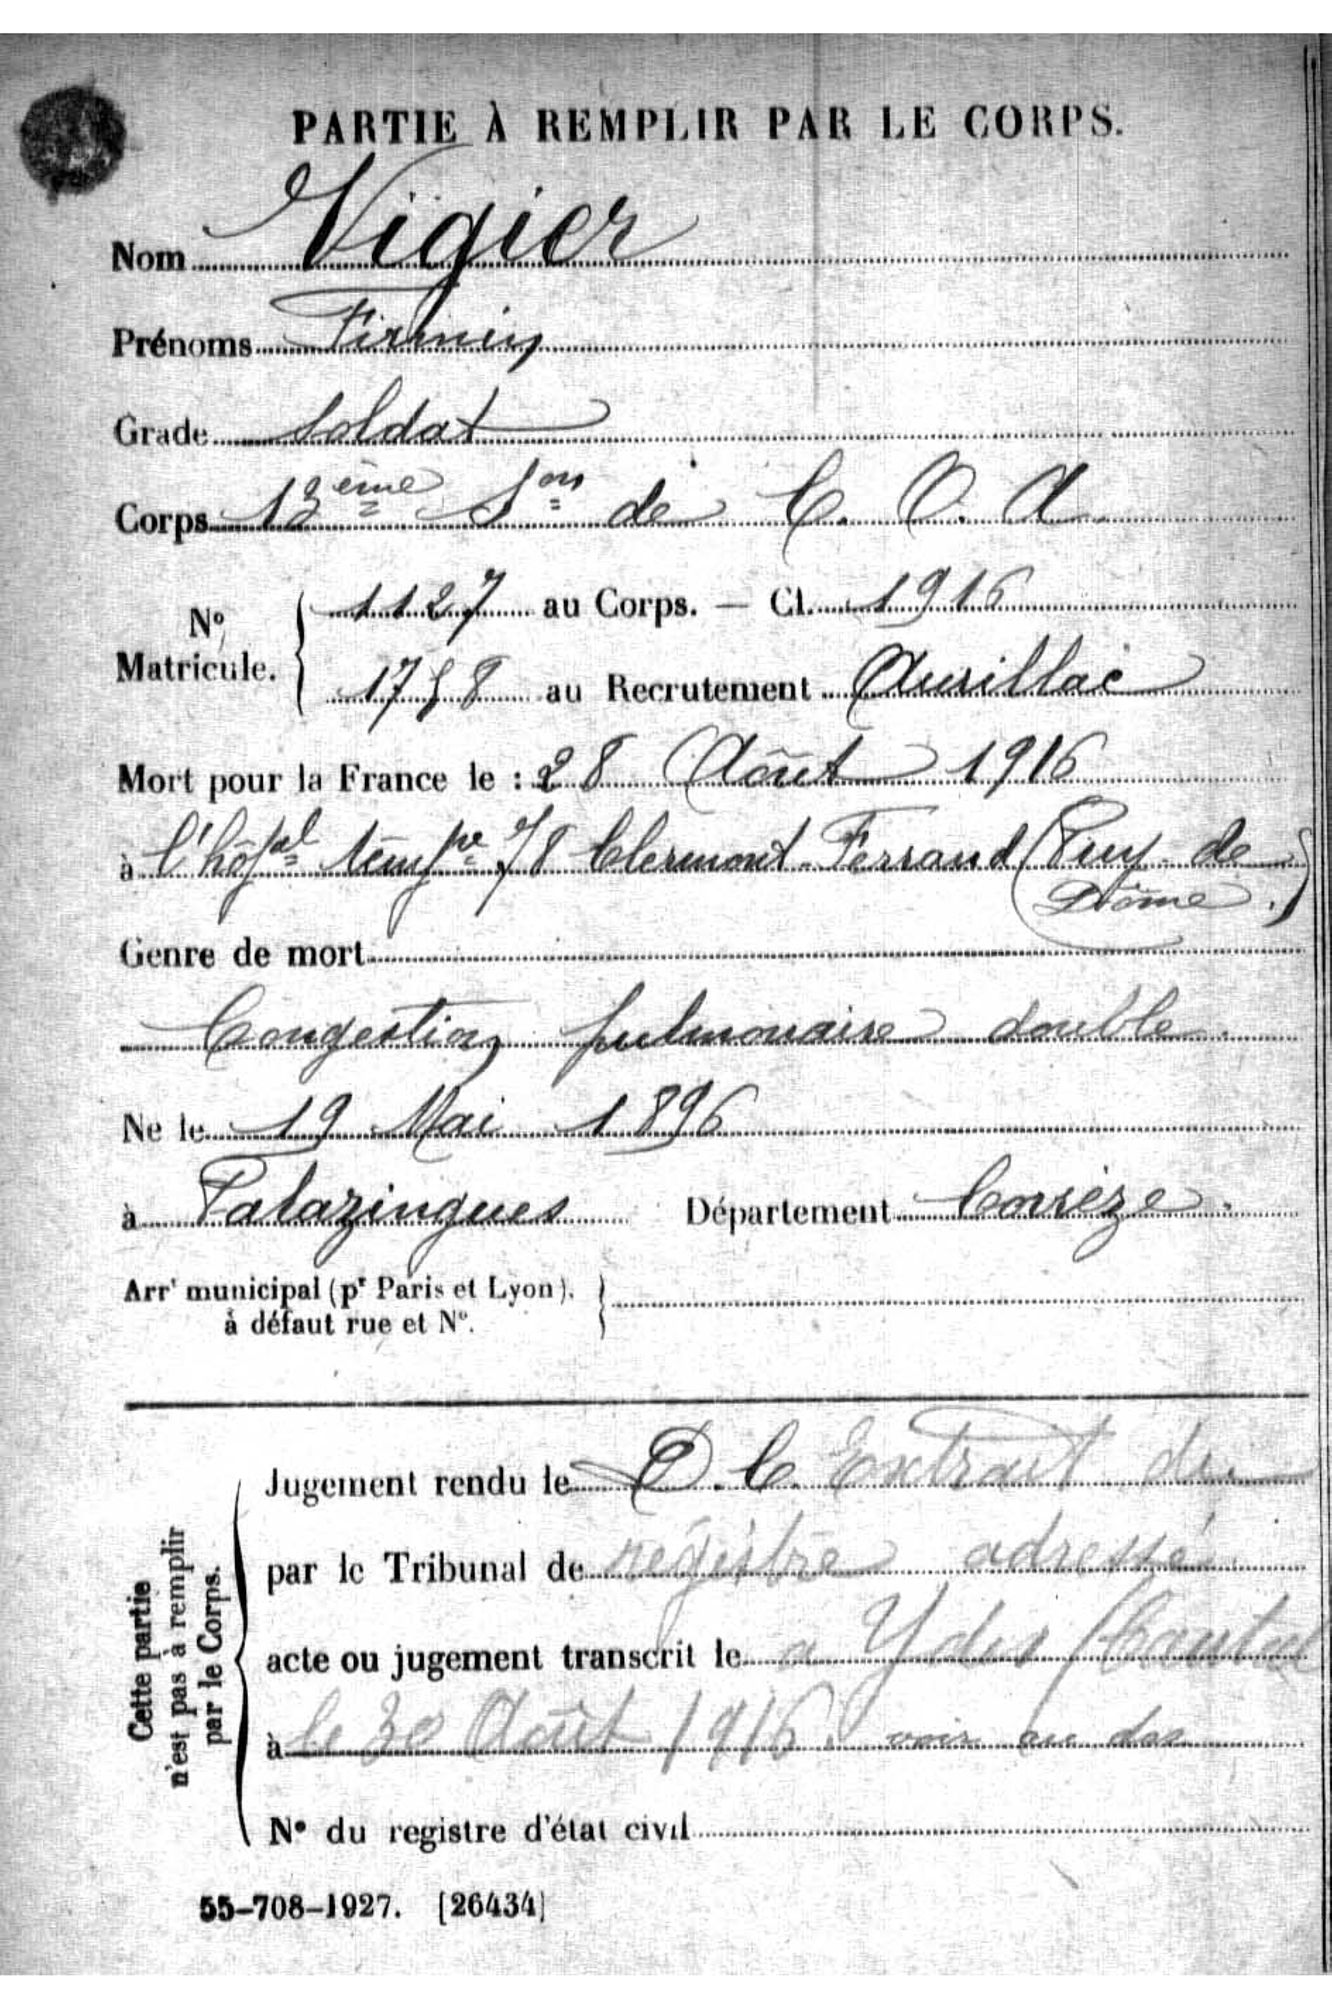 PARTIE À REMPLIR PAR LE CORPS.
Nom Vigier
Prénoms Firmin
Grade Soldat
Corps 13ème Son de C. O. A
No Matricule. 1127 au Corps. — Cl. 1916
1758 au Recrutement Aurillac
Mort pour la France le : 28 Août 1916
à l'hôpal tempre 78 Clermont-Ferrand (Puy-de
Dôme.)
Genre de mort
Congestion pulmonaire double.
Né le 19 Mai 1896
à Palazingues Département Corrèze.
Arrt municipal (pr Paris et Lyon),
à défaut rue et No.
Cette partie
n'est pas à remplir
par le Corps.
Jugement rendu le D. C. Extrait du
par le Tribunal de régistre adressé
acte ou jugement transcrit le a Ydes (Cantal
à le 30 Août 1916. voir au dos
No du registre d'état civil
55-708-1927. [26434]